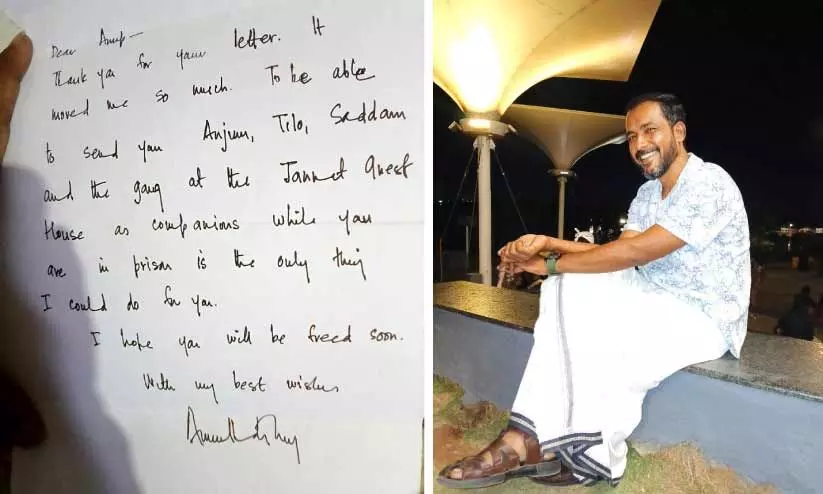 Dear Anup —
Thank you for your letter. It
moved me so much. To be able
to send you Anjum, Tilo, Saddam
and the gang at the Jannat Guest
House as companions while you
are in prison is the only thing
I could do for you.
I hope you will be freed soon.
With my best wishes